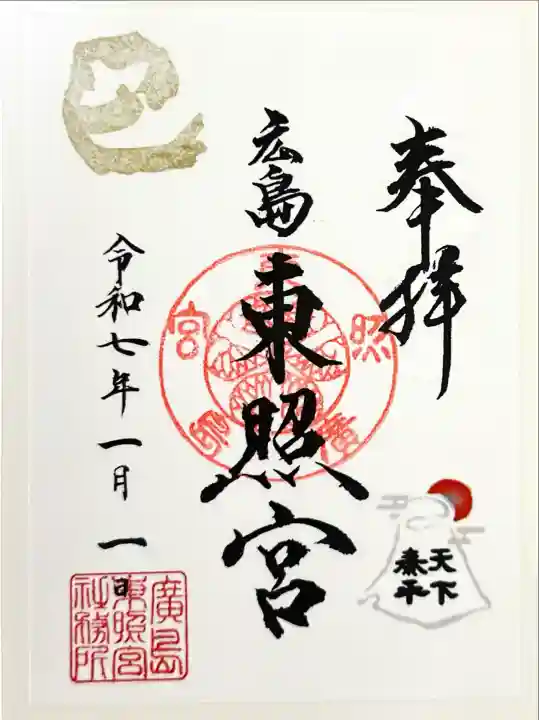 奉拝
広島
東照宮
巳
令和七年一月一日
天下
泰平
廣島
東照宮
社務所